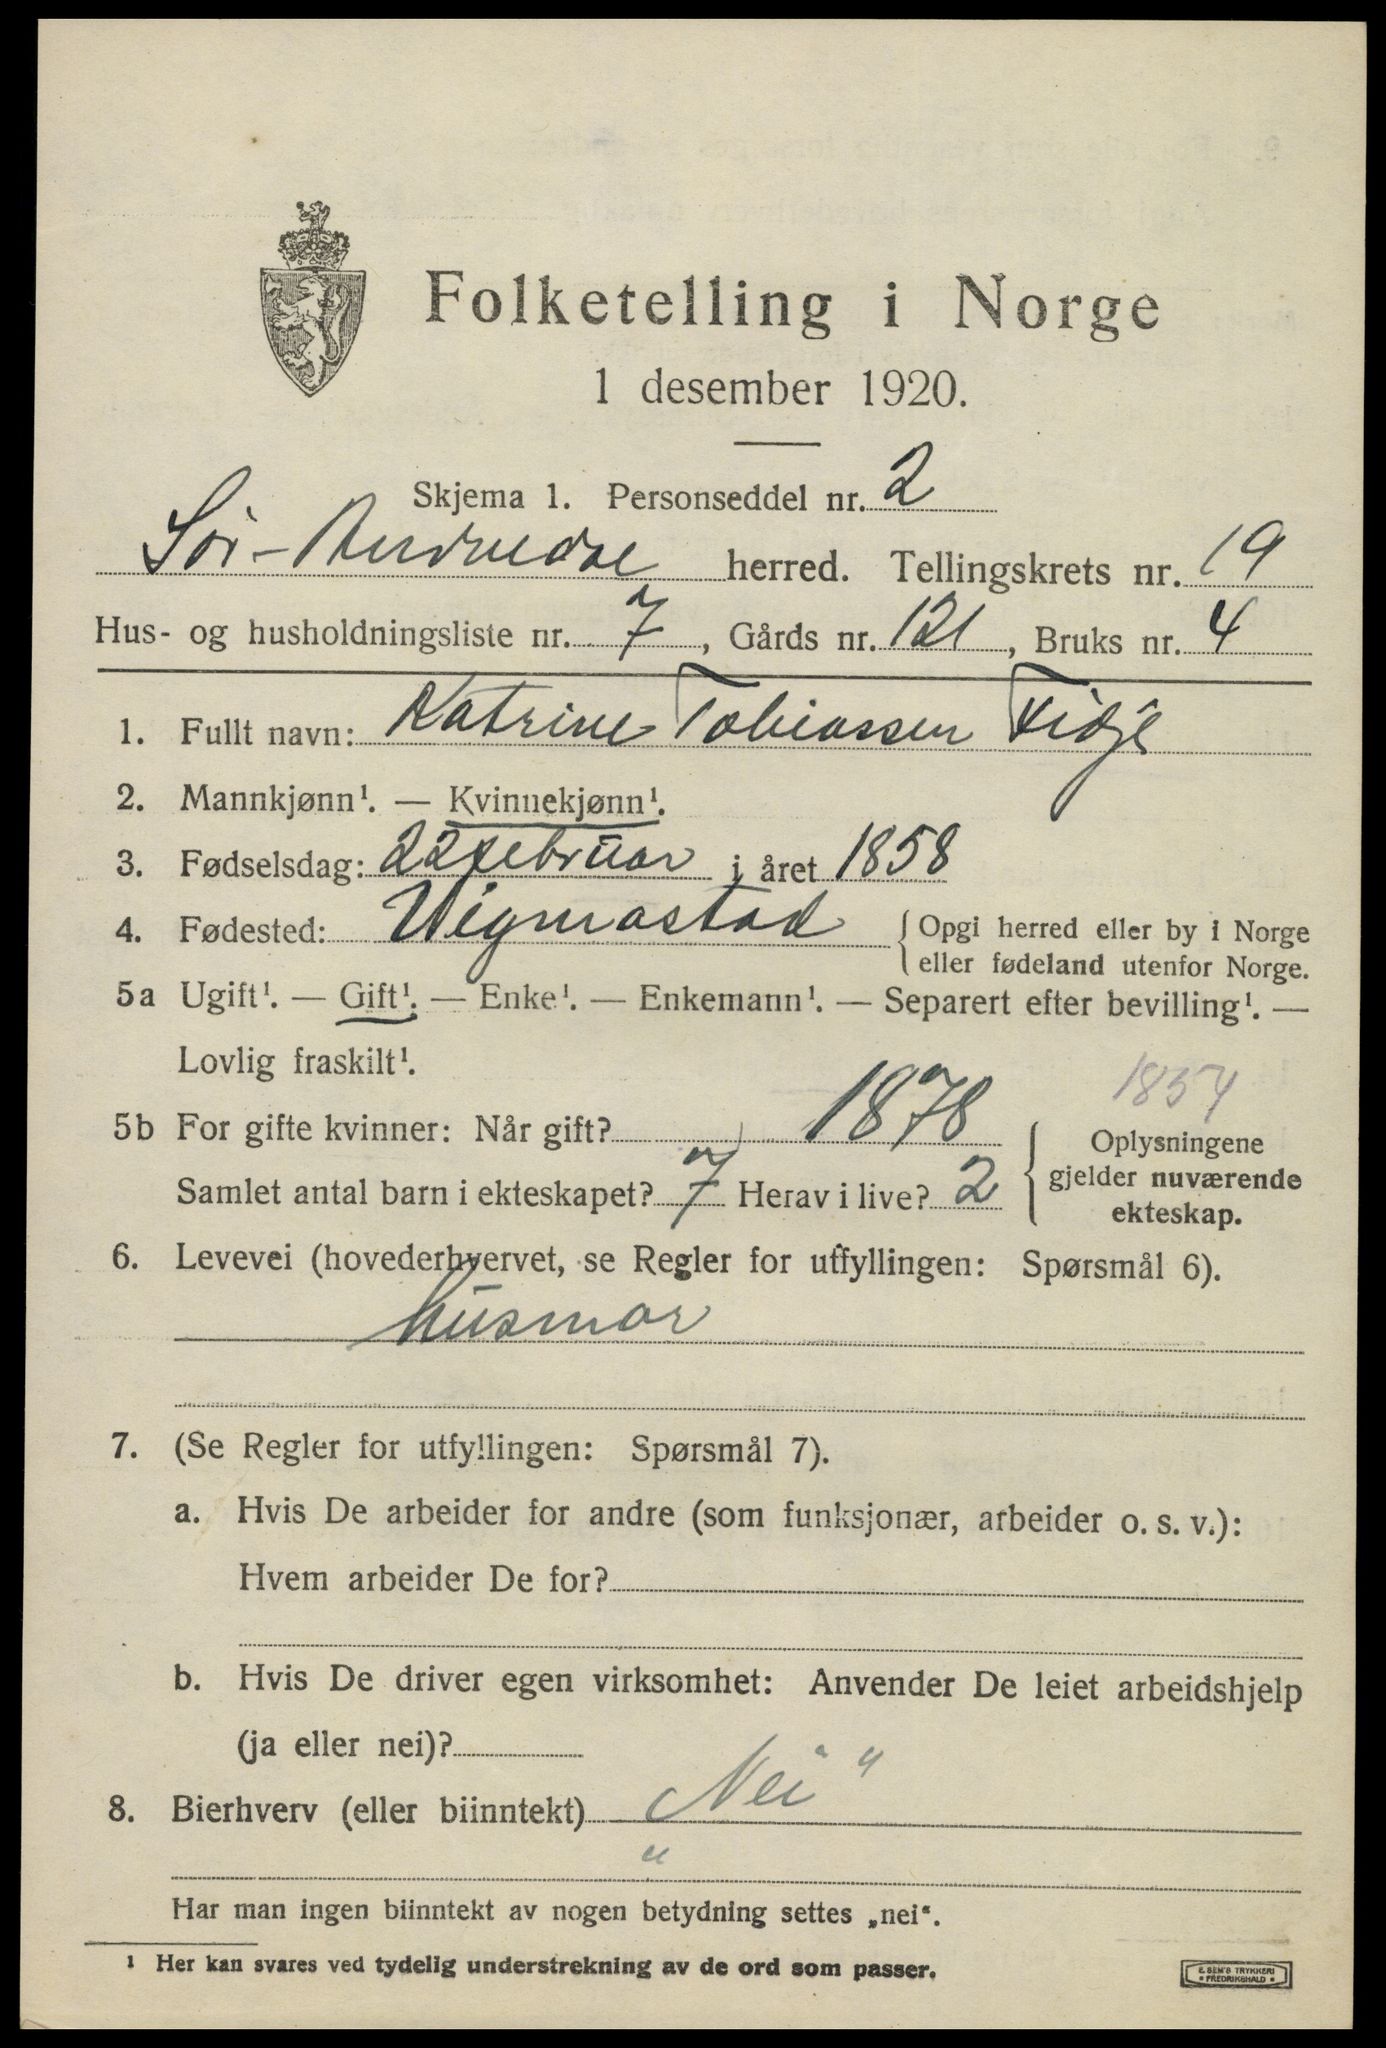 Folketelling i Norge
1 desember 1920.
Skjema 1. Personseddel nr. 2
Sør-Audnedal herred. Tellingskrets nr. 19
Hus- og husholdningsliste nr. 7, Gårds nr. 121, Bruks nr. 4
1. Fullt navn: Katrine Tobiassen Fidje
2. Mannkjønn¹. — Kvinnekjønn¹.
3. Fødselsdag: 22 februar i året 1858
4. Fødested: Vigmostad { Opgi herred eller by i Norge
eller fødeland utenfor Norge.
5a Ugift¹. — Gift¹. — Enke¹. — Enkemann¹. — Separert efter bevilling¹. —
Lovlig fraskilt¹.
1854
5b For gifte kvinner: Når gift? 1878
Samlet antal barn i ekteskapet? 7 Herav i live? 2
Oplysningene
gjelder nuværende
ekteskap.
6. Levevei (hovederhvervet, se Regler for utfyllingen: Spørsmål 6).
husmor
7. (Se Regler for utfyllingen: Spørsmål 7).
a. Hvis De arbeider for andre (som funksjonær, arbeider o. s. v.):
Hvem arbeider De for?
b. Hvis De driver egen virksomhet: Anvender De leiet arbeidshjelp
(ja eller nei)?
8. Bierhverv (eller biinntekt) „Nei"
Har man ingen biinntekt av nogen betydning settes „nei".
¹ Her kan svares ved tydelig understrekning av de ord som passer.
E. SEM'S TRYKKERI
• FREDRIKSHALD •